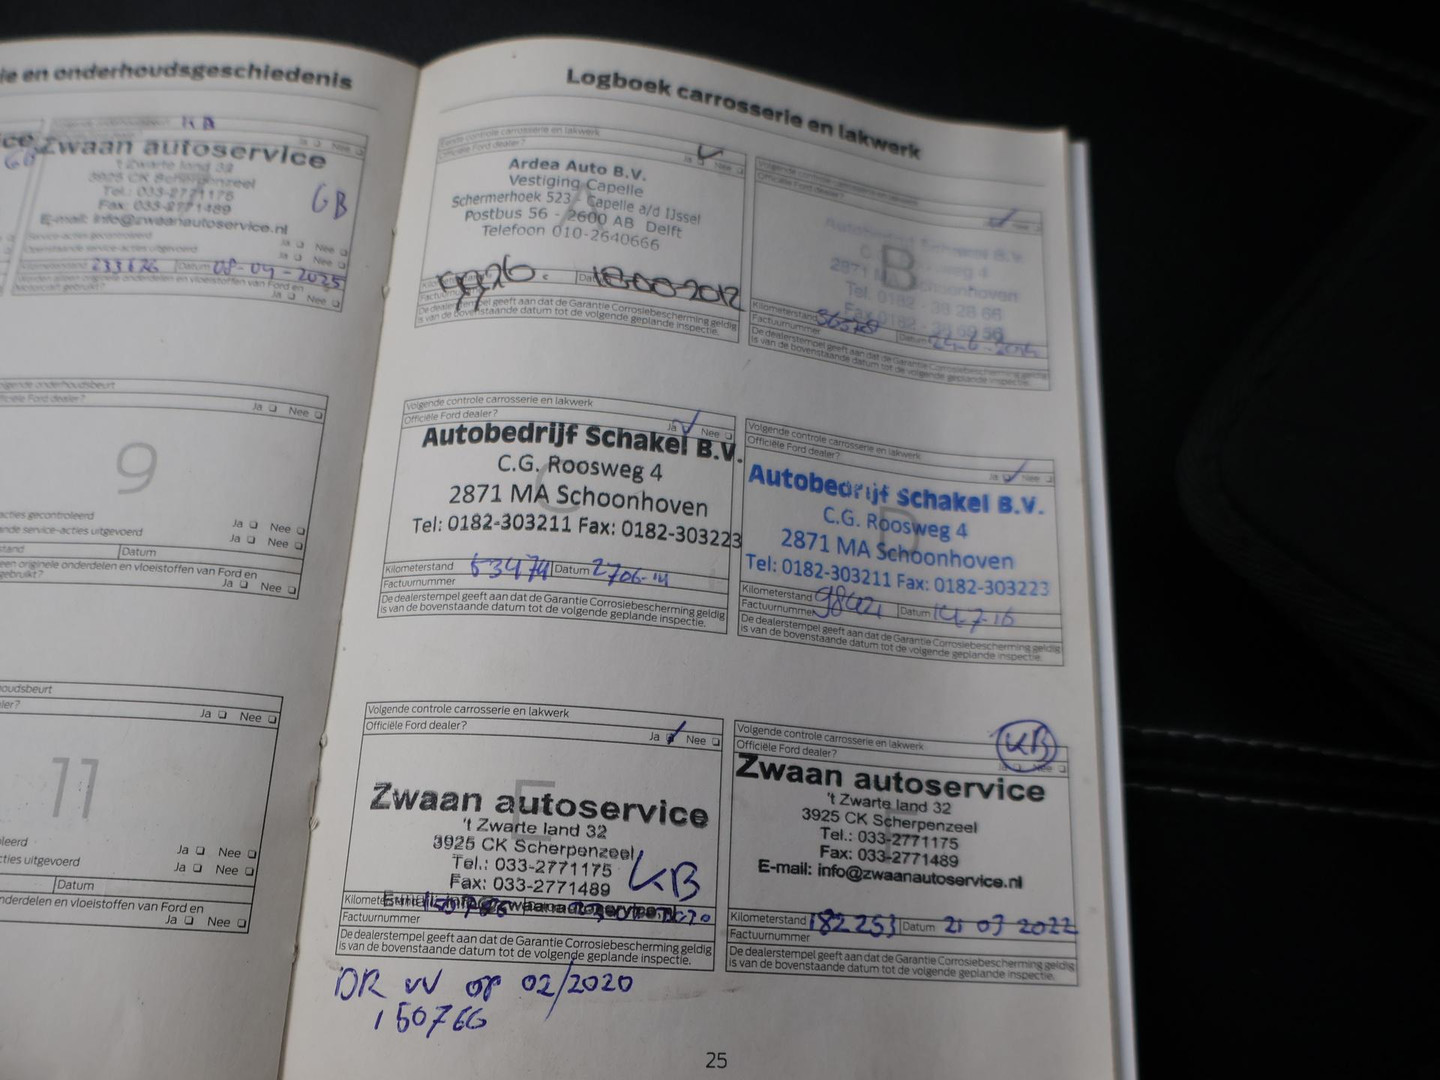 ie en onderhoudsgeschiedenis
KB
Zwaan autoservice
't Zwarte land 32
3925 CK Scherpenzeel
Tel.: 033-2771175
Fax: 033-2771489
E-mail: info@zwaanautoservice.nl
GB
Ja Nee
Ja Nee
Kilometerstand 233626 Datum 08-09-2025
Ja Nee
Ja Nee
9
acties gecontroleerd
Ja Nee
Ja Nee
Datum
een originele onderdelen en vloeistoffen van Ford en
gebruikt?
Ja Nee
houdsbeurt
Ja Nee
11
Ja Nee
cties uitgevoerd
Ja Nee
Datum
nderdelen en vloeistoffen van Ford en
Ja Nee
Logboek carrosserie en lakwerk
Eerste controle carrosserie en lakwerk
Officiële Ford dealer?
Ja Nee
A
Ardea Auto B.V.
Vestiging Capelle
Schermerhoek 523 - Capelle a/d IJssel
Postbus 56 - 2600 AB Delft
Telefoon 010-2640666
De dealerstempel geeft aan dat de Garantie Corrosiebescherming geldig
is van de bovenstaande datum tot de volgende geplande inspectie.
Volgende controle carrosserie en lakwerk
Officiële Ford dealer?
B
Kilometerstand
Factuurnummer
Datum
De dealerstempel geeft aan dat de Garantie Corrosiebescherming geldig
is van de bovenstaande datum tot de volgende geplande inspectie.
Volgende controle carrosserie en lakwerk
Officiële Ford dealer?
Ja Nee
C
Autobedrijf Schakel B.V.
C.G. Roosweg 4
2871 MA Schoonhoven
Tel: 0182-303211 Fax: 0182-303223
Kilometerstand 53474 Datum 27-06-14
Factuurnummer
De dealerstempel geeft aan dat de Garantie Corrosiebescherming geldig
is van de bovenstaande datum tot de volgende geplande inspectie.
Volgende controle carrosserie en lakwerk
Officiële Ford dealer?
Ja Nee
D
Autobedrijf Schakel B.V.
C.G. Roosweg 4
2871 MA Schoonhoven
Tel: 0182-303211 Fax: 0182-303223
Kilometerstand Datum 14-7-16
Factuurnummer
De dealerstempel geeft aan dat de Garantie Corrosiebescherming geldig
is van de bovenstaande datum tot de volgende geplande inspectie.
Volgende controle carrosserie en lakwerk
Officiële Ford dealer?
Ja Nee
E
Zwaan autoservice
't Zwarte land 32
3925 CK Scherpenzeel
Tel.: 033-2771175
Fax: 033-2771489
KB
Factuurnummer
De dealerstempel geeft aan dat de Garantie Corrosiebescherming geldig
is van de bovenstaande datum tot de volgende geplande inspectie.
DR vv op 02/2020
150766
Volgende controle carrosserie en lakwerk
Officiële Ford dealer?
KB
F
Zwaan autoservice
't Zwarte land 32
3925 CK Scherpenzeel
Tel.: 033-2771175
Fax: 033-2771489
E-mail: info@zwaanautoservice.nl
Kilometerstand 182253 Datum 21 07 2022
Factuurnummer
De dealerstempel geeft aan dat de Garantie Corrosiebescherming geldig
is van de bovenstaande datum tot de volgende geplande inspectie.
25